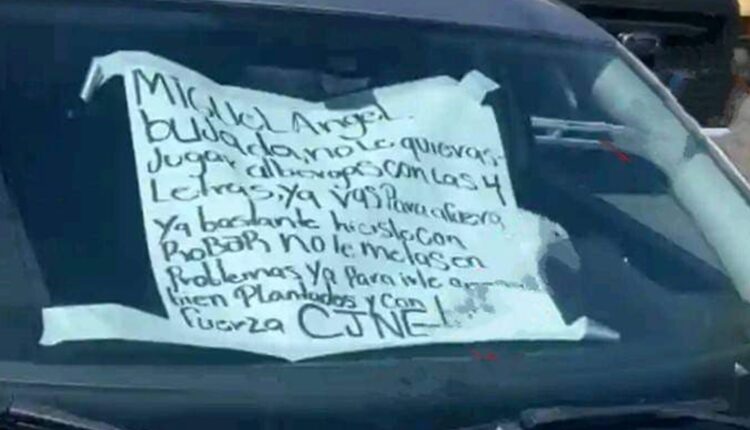 Miguel Angel.
bujada, no le quieras
Jugar alberqas con las 4
Letras, ya vas para afuera
ya bastante hiciste con
Robar no te metas en
Problemas ya para irle
bien Plantados y con
fuerza CJNE!